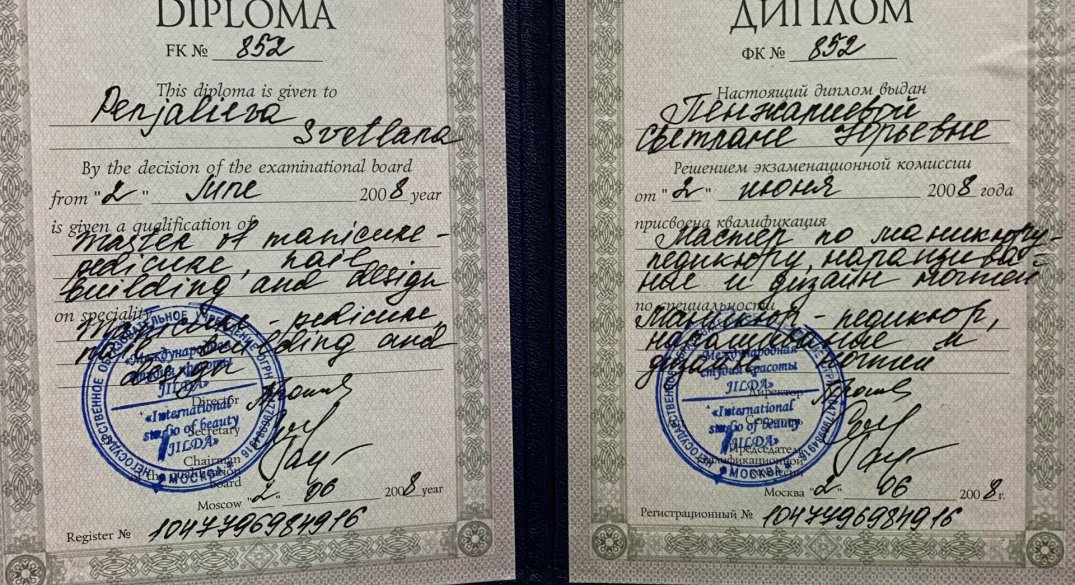 DIPLOMA
FK № 852
This diploma is given to
Penjalieva
Svetlana
By the decision of the examinational board
from "2" June 2008 year
is given a qualification of
master of manicure-
pedicure, nail
building and design
on speciality
manicure - pedicure
nail building and
design
Director
Secretary
Chairman
of the qualification
board
Moscow "2" 06 2008 year
Register № 1047796984916
«Международная
студия красоты
JILDA»
«International
studio of beauty
JILDA»
МОСКВА
ДИПЛОМ
ФК № 852
Настоящий диплом выдан
Пенжалиевой
Светлане Юрьевне
Решением экзаменационной комиссии
от "2" июня 2008 года
присвоена квалификация
Мастер по маникюру-
педикюру, наращива-
ние и дизайн ногтей
по специальности
Маникюр - педикюр,
наращивание и
дизайн ногтей
Директор
Секретарь
Председатель
квалификационной
комиссии
Москва "2" 06 2008 г.
Регистрационный № 1047796984916
«Международная
студия красоты
JILDA»
«International
studio of beauty
JILDA»
МОСКВА